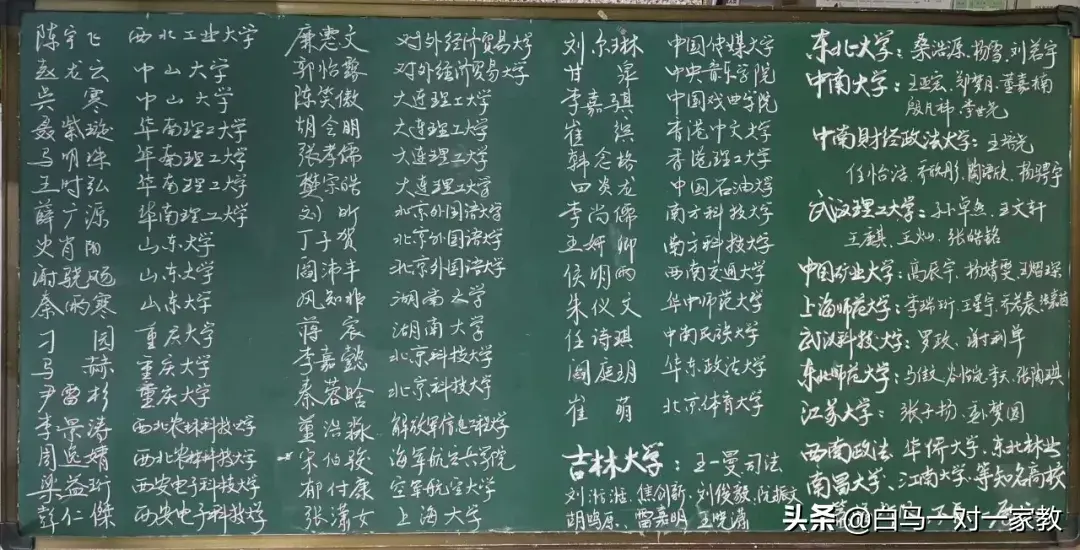 陈宇飞 西北工业大学
赵龙云 中山大学
吴寒 中山大学
聂紫璇 华南理工大学
马明琛 华南理工大学
王时弘 华南理工大学
薛广源 华南理工大学
史肖阳 山东大学
谢骁飏 山东大学
秦雨寒 山东大学
刁园 重庆大学
马赫 重庆大学
尹雷杉 重庆大学
李景涛 西北农林科技大学
周逸婧 西北农林科技大学
梁益珩 西安电子科技大学
彭仁傑 西安电子科技大学
廉惠文 对外经济贸易大学
郭怡露 对外经济贸易大学
陈笑傲 大连理工大学
胡令明 大连理工大学
张孝儒 大连理工大学
樊宗皓 大连理工大学
刘昕 北京外国语大学
丁子贺 北京外国语大学
阎沛丰 北京外国语大学
湖南大学
蒋宸 湖南大学
李嘉懿 北京科技大学
秦蓉晗 北京科技大学
董浩淼 解放军信息工程大学
宋伯骏 海军航空兵学院
郁付康 空军航空大学
张潇女 上海大学
刘尔琳 中国传媒大学
甘霖 中央音乐学院
李嘉骐 中国戏曲学院
崔缤 香港中文大学
韩念格 香港理工大学
四炎龙 中国石油大学
李尚儒 南方科技大学
王妍卿 南方科技大学
侯明雨 西南交通大学
朱仪文 华中师范大学
任诗琪 中南民族大学
阎庭玥 华东政法大学
崔萌 北京体育大学
吉林大学：王一曼司法
刘 焦创新、刘俊毅、阮振文
胡鸣原、雷嘉明、王晓潇
东北大学：桑浩源、杨雪、刘若宇
中南大学：王亚宏、郑梦月、董嘉楠
殷凡祎、李世尧
中南财经政法大学：王培元
任怡洁、
武汉理工大学：孙卓然、王文轩
王麒、王灿、张皓铭
中国矿业大学：高辰宇、杨婧雯、王熠琛
上海师范大学：李瑞珩、王星宇、
武汉科技大学：罗政、谢利单
东北师范大学：马傲、
江苏大学：张子杨、孟梦圆
西南政法、华侨大学、东北林业
南昌大学、江南大学、等知名高校
头条 @白鸟一对一家教